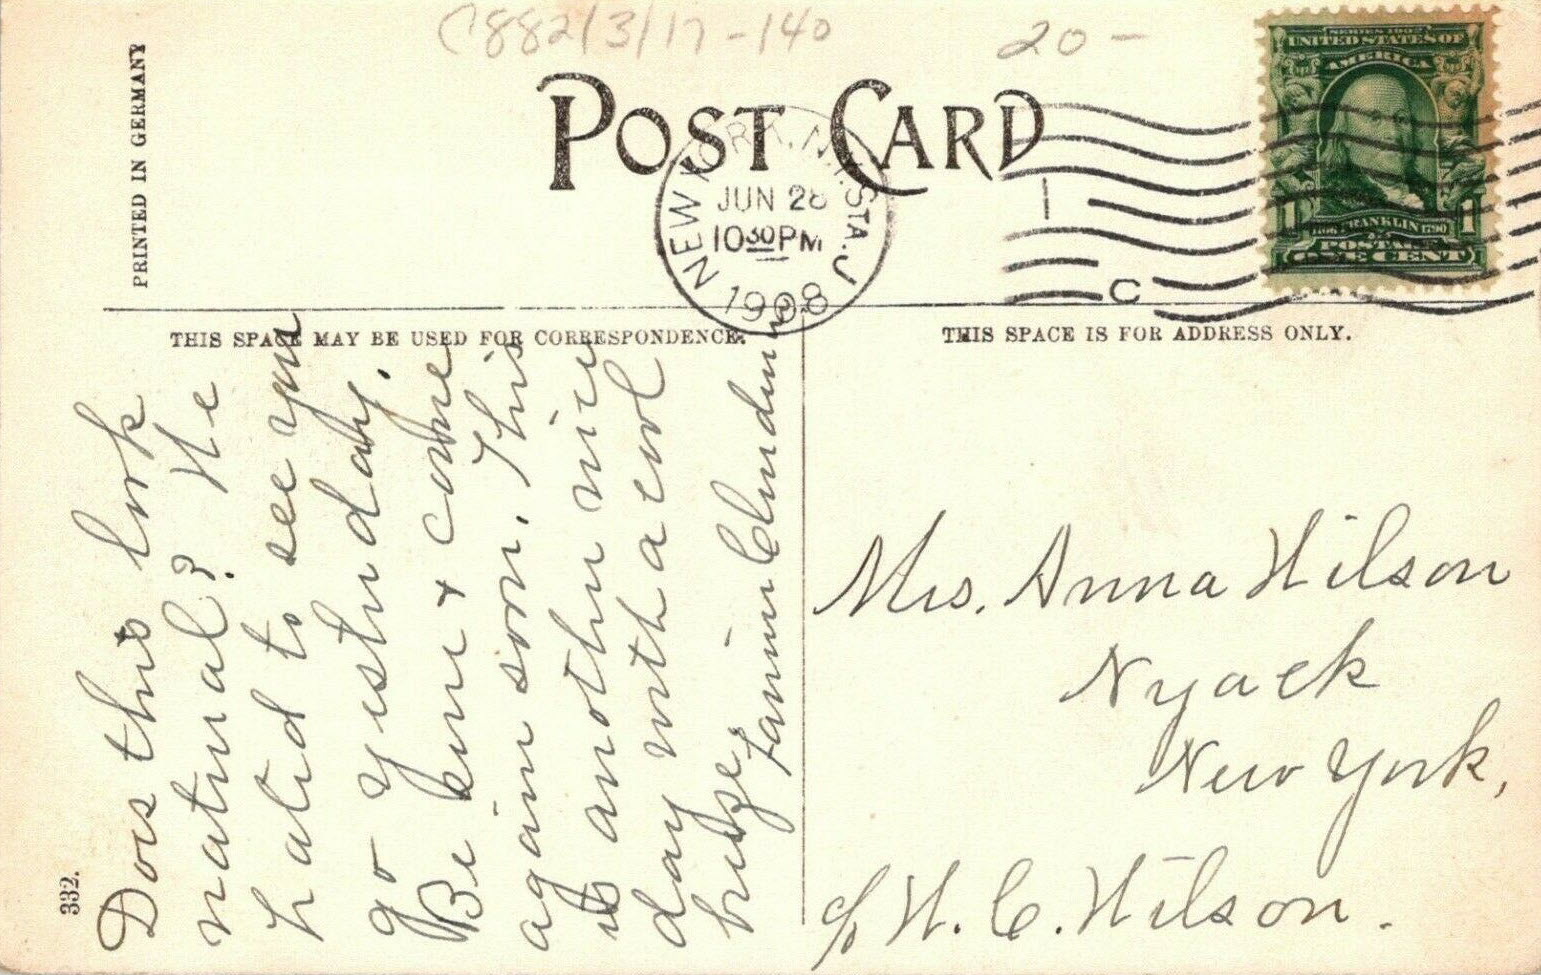 C882/3/17-140
20-
PRINTED IN GERMANY
POST CARD
NEW YORK, N.Y. STA. J
JUN 28
10 30 PM
1908
C
SERIES 1902
UNITED STATES OF
AMERICA
1 FRANKLIN 1
1706 1790
POSTAGE
ONE CENT
THIS SPACE MAY BE USED FOR CORRESPONDENCE.
THIS SPACE IS FOR ADDRESS ONLY.
Does this look
natural? We
hated to see you
go yesterday.
Be sure & come
again soon. This
is another nice
day with a cool
breeze.
332.
Mrs. Anna Wilson
Nyack
New York,
c/o W. C. Wilson.